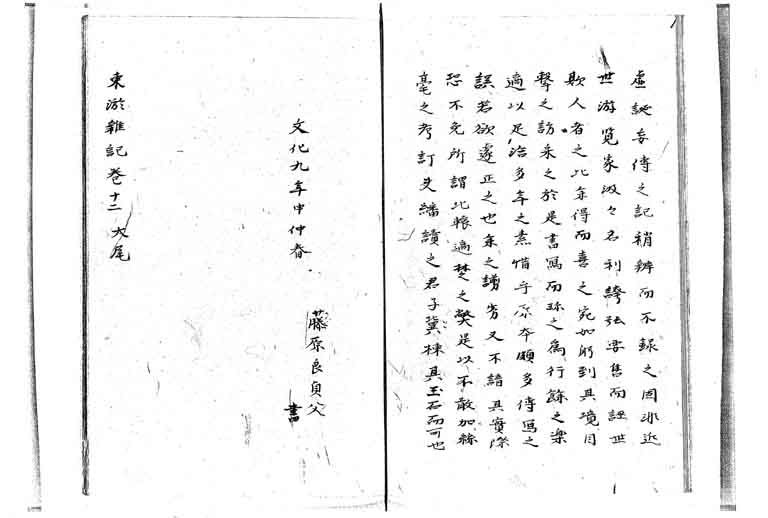 虚誕妄傳之記稍辨而不録之固非近
世游覧家汲々名利誇張要售而誣世
欺人者之比余得而喜之宛如躬到其境目
撃之訪求之於是書寫而珎之為行餘之楽
適以足治多年之素惜乎原本頗多傳寫之
誤若欲遽正之也余之謭劣又不諳其實際
恐不免所謂北轅適楚之弊是以不敢加絲
毫之考訂更繙讀之君子冀楝其玉石而可也
文化九年申仲春
藤原良貞父
書
東游雜記巻十二大尾